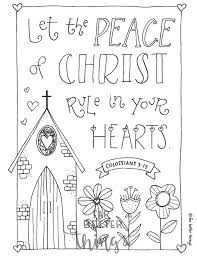 Let the PEACE
of CHRIST
RULE in YOUR
HEARTS.
COLOSSIANS 3:15
THE LATTER
things